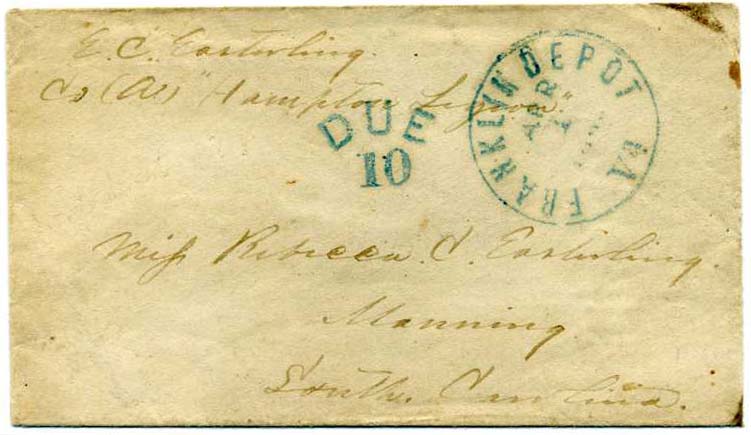 E. C. Easterling.
Co (A) "Hampton Legion"
DUE
10
FRANKLIN DEPOT VA
APR
Miss Rebecca J. Easterling.
Manning
South. Carolina.